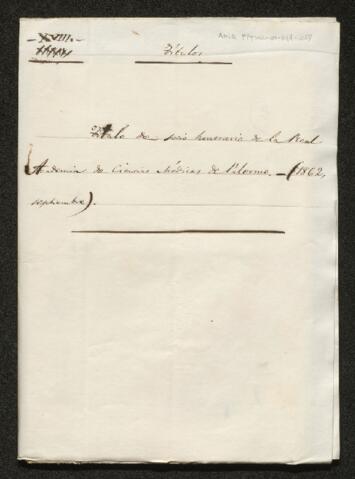 - XVIII. -
Títulos
Título de socio honorario de la Real
Academia de Ciencias Médicas de Palermo. - (1862,
septiembre).